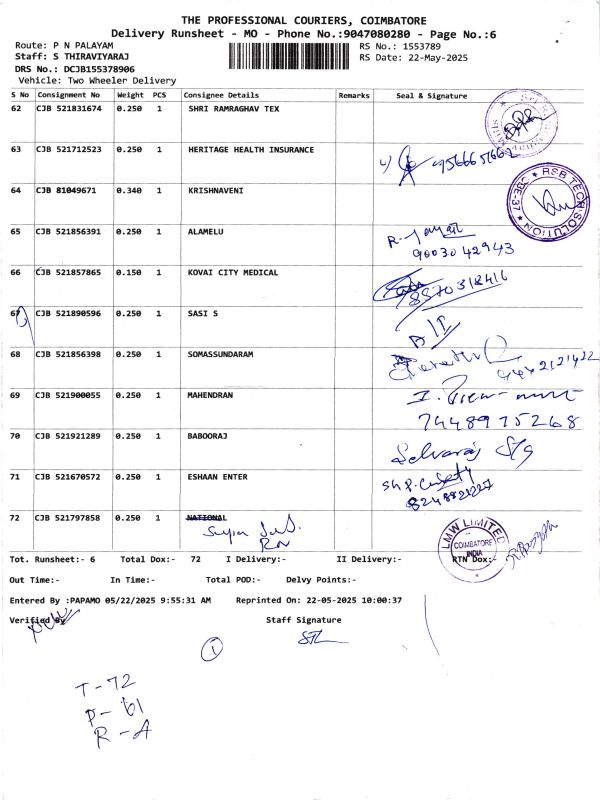 THE PROFESSIONAL COURIERS, COIMBATORE
Delivery Runsheet - MO - Phone No.:9047080280 - Page No.:6
Route: P N PALAYAM RS No.: 1553789
Staff: S THIRAVIYARAJ RS Date: 22-May-2025
DRS No.: DCJB155378906
Vehicle: Two Wheeler Delivery
S No Consignment No Weight PCS Consignee Details Remarks Seal & Signature
62 CJB 521831674 0.250 1 SHRI RAMRAGHAV TEX
63 CJB 521712523 0.250 1 HERITAGE HEALTH INSURANCE
64 CJB 81049671 0.340 1 KRISHNAVENI
RSB TECH SOLUTION CBE-37
65 CJB 521856391 0.250 1 ALAMELU
9003042943
66 CJB 521857865 0.150 1 KOVAI CITY MEDICAL
67 CJB 521890596 0.250 1 SASI S
68 CJB 521856398 0.250 1 SOMASSUNDARAM
69 CJB 521900055 0.250 1 MAHENDRAN
7448975268
70 CJB 521921289 0.250 1 BABOORAJ
Selvaraj
71 CJB 521670572 0.250 1 ESHAAN ENTER
72 CJB 521797858 0.250 1 NATIONAL
LMW LIMITED
COIMBATORE
INDIA
Tot. Runsheet:- 6 Total Dox:- 72 I Delivery:- II Delivery:- RTN Dox:-
Out Time:- In Time:- Total POD:- Delvy Points:-
Entered By :PAPAMO 05/22/2025 9:55:31 AM Reprinted On: 22-05-2025 10:00:37
Verified By Staff Signature
1
T-72
P-61
R-A